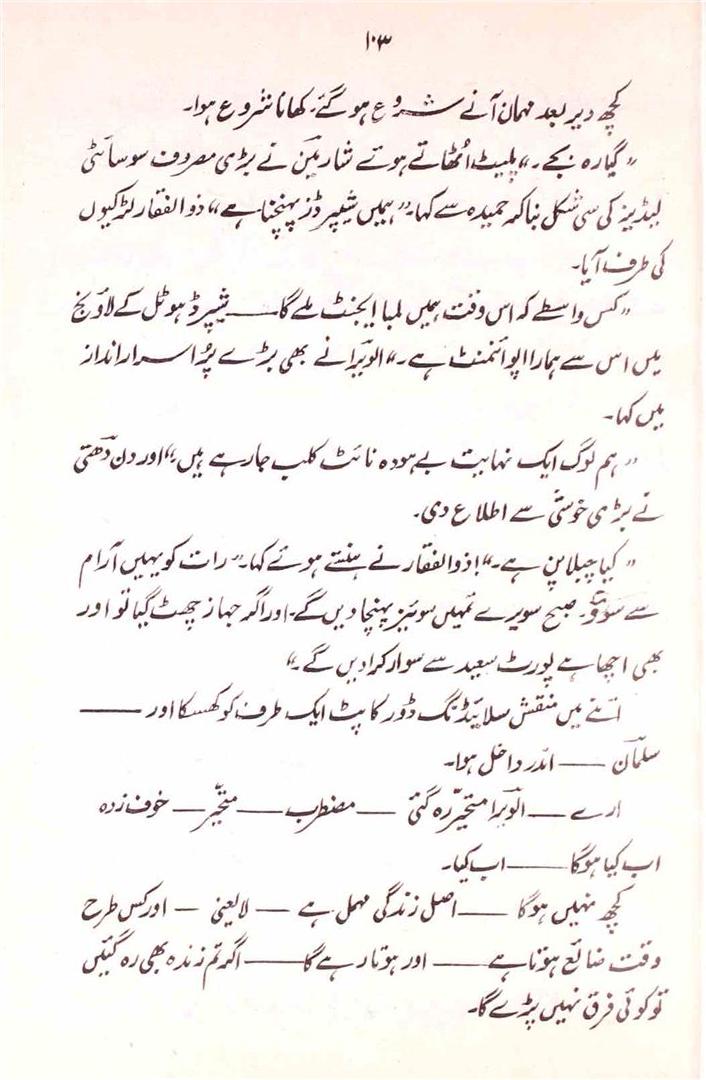 ۱۰۳
کچھ دیر بعد مہمان آنے شروع ہو گئے۔ کھانا شروع ہوا۔
”گیارہ بجے۔“ پلیٹ اُٹھاتے ہوئے شارمین نے بڑی مصروف سوسائٹی
لیڈیز کی سی شکل بنا کر حمیدہ سے کہا۔ ”ہمیں شیپرڈز پہنچنا ہے“ ذوالفقار لڑکیوں
کی طرف آیا۔
”کس واسطے کہ اس وقت ہمیں لمبا ایجنٹ ملے گا —— شیپرڈ ہوٹل کے لاؤنج
میں اس سے ہمارا اپوائنمنٹ ہے۔“ الویرا نے بھی بڑے پُر اسرار انداز
میں کہا۔
”ہم لوگ ایک نہایت بے ہودہ نائٹ کلب جا رہے ہیں۔“ اور دن دھتی
نے بڑی خوشی سے اطلاع دی۔
”کیا چبلا پن ہے۔“! ذوالفقار نے ہنستے ہوئے کہا۔ ”رات کو یہیں آرام
سے سوؤ۔ صبح سویرے تمہیں سوئیز پہنچا دیں گے۔ اور اگر جہاز چھٹ گیا تو اور
بھی اچھا ہے پورٹ سعید سے سوار کرا دیں گے۔“
اتنے میں منقش سلائیڈنگ ڈور کا پٹ ایک طرف کو کھسکا اور ——
سلمان —— اندر داخل ہوا۔
ارے —— الویرا متحیر رہ گئی —— مضطرب —— متحیر —— خوف زدہ
اب کیا ہوگا —— اب کیا۔
کچھ نہیں ہوگا —— اصل زندگی مہمل ہے —— لایعنی — اور کس طرح
وقت ضائع ہوتا ہے —— اور ہوتا رہے گا —— اگر تم زندہ بھی رہ گئیں
تو کوئی فرق نہیں پڑے گا۔